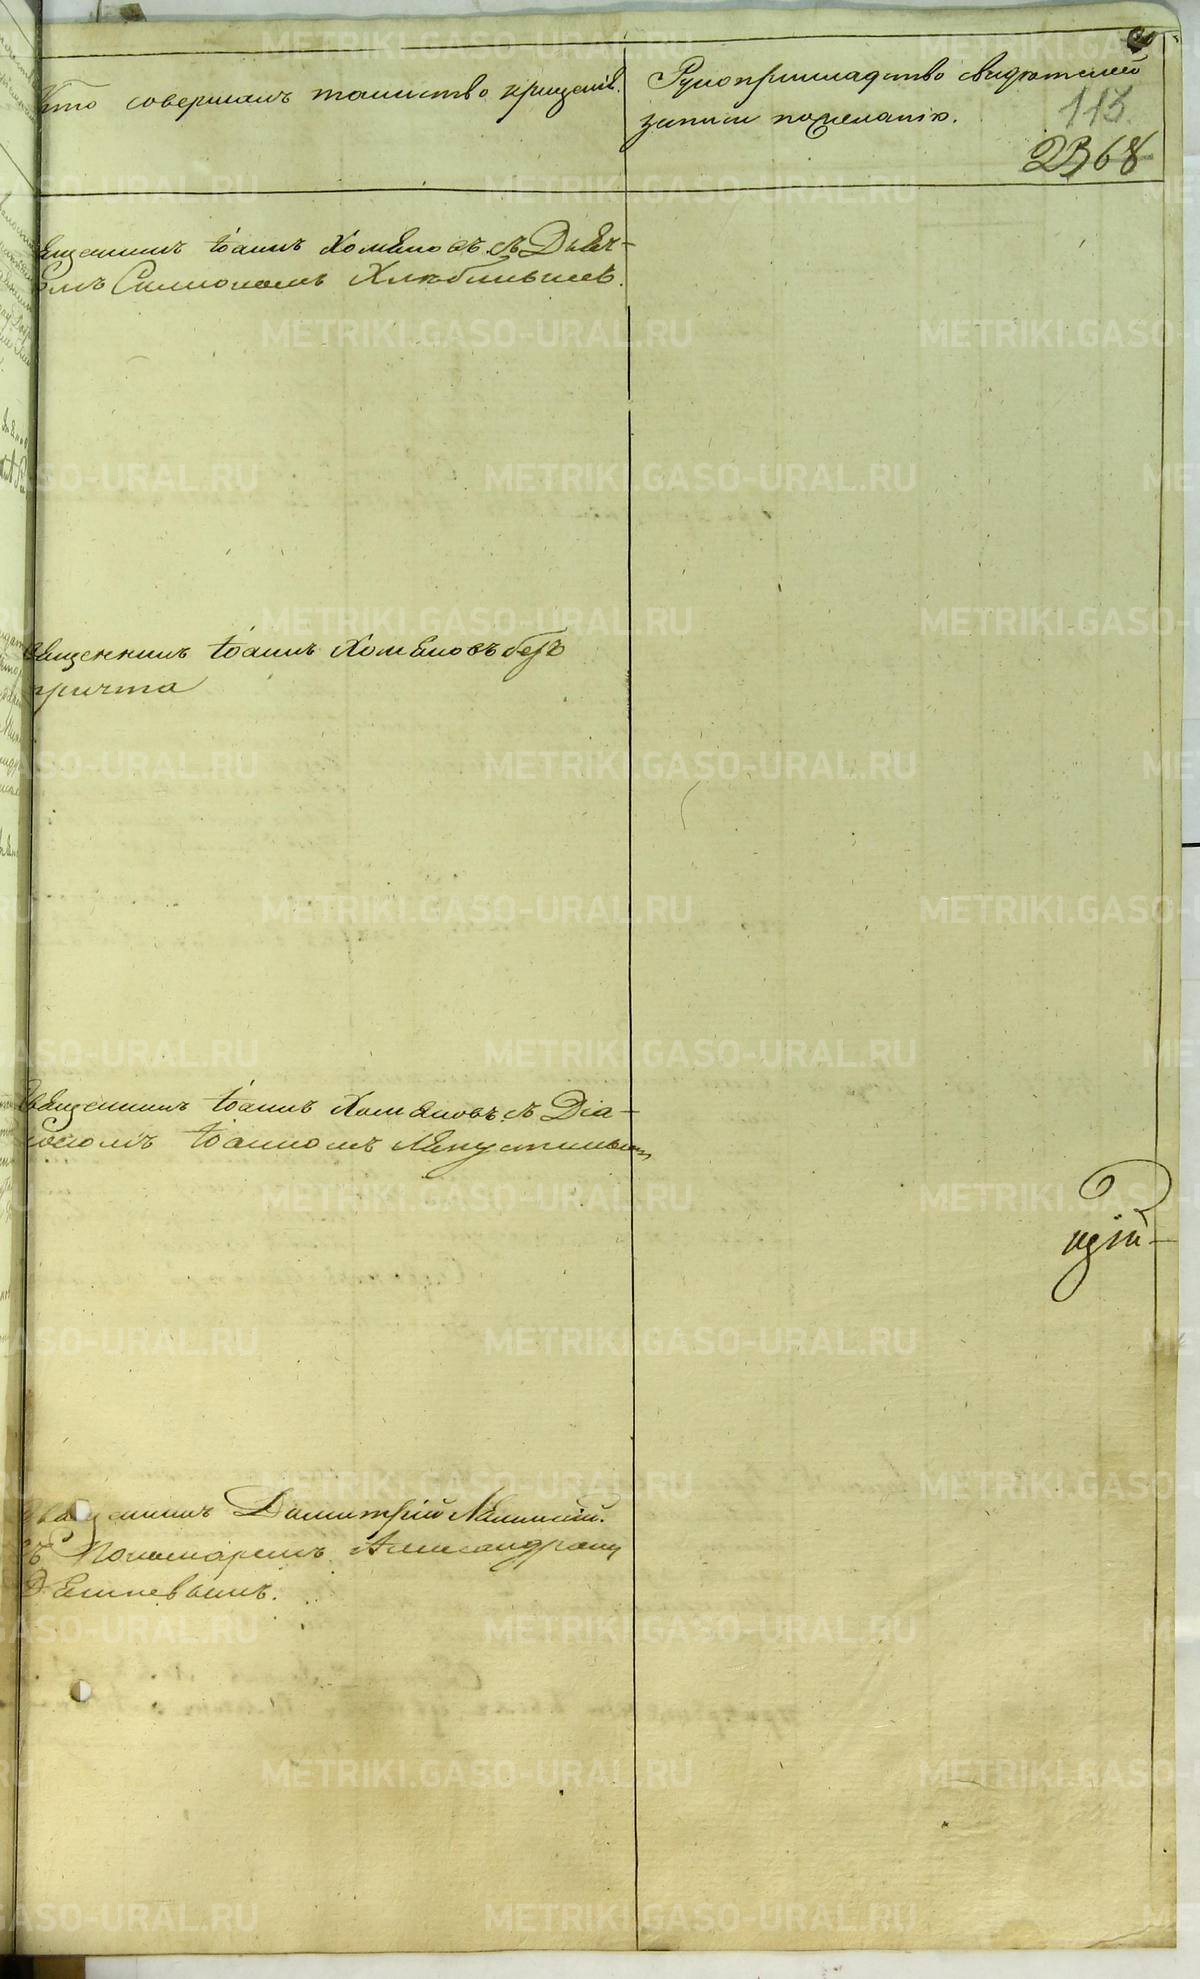 Кто совершалъ таинство крещенія.
Рукоприкладство свидѣтелей
записи по желанію.
113.
2368
Священникъ Іоаннъ Хомяковъ съ Дьяч-
омъ Симеономъ
Священникъ Іоаннъ Хомяковъ безъ
причта
Священникъ Іоаннъ Хомяковъ съ Діа-
кономъ Іоанномъ Капустинымъ
Священникъ Димитрій
съ Пономаремъ Александромъ
METRIKI.GASO-URAL.RU